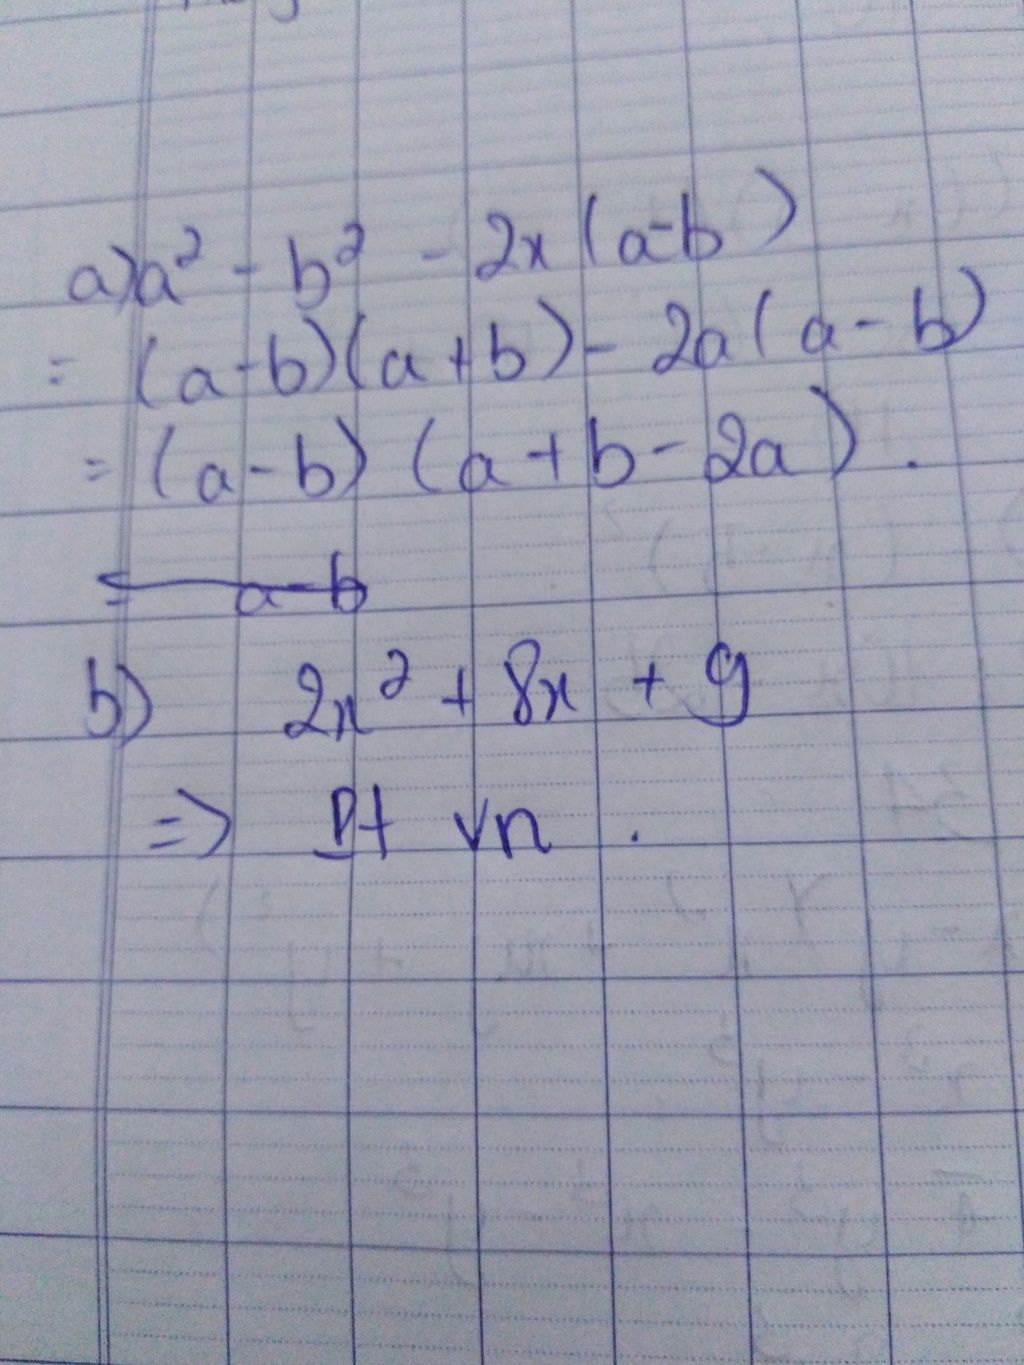 a) a² - b² - 2x (a-b)
= (a-b)(a+b) - 2a (a-b)
= (a-b) (a+b-2a).
= a-b
b) 2x² + 8x + 9
=> Pt vn.